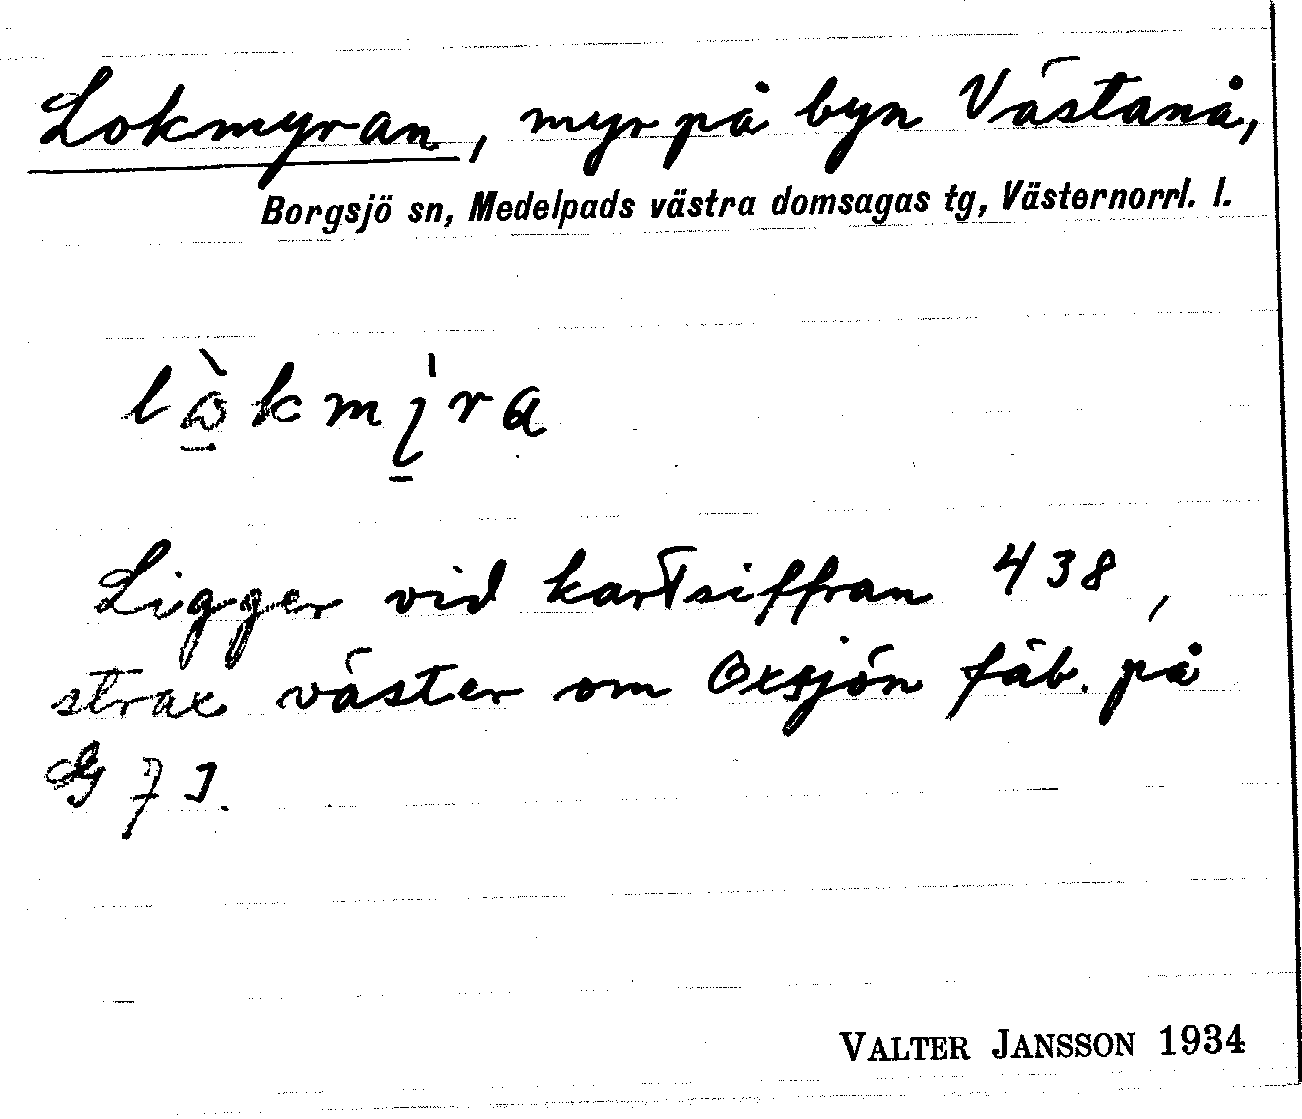 Lokmyran, myr på byn Västanå,
Borgsjö sn, Medelpads västra domsagas tg, Västernorrl. l.
Ligger vid kartsiffran 438,
strax väster om Oxsjön fäb. på
G 7 J.
VALTER JANSSON 1934